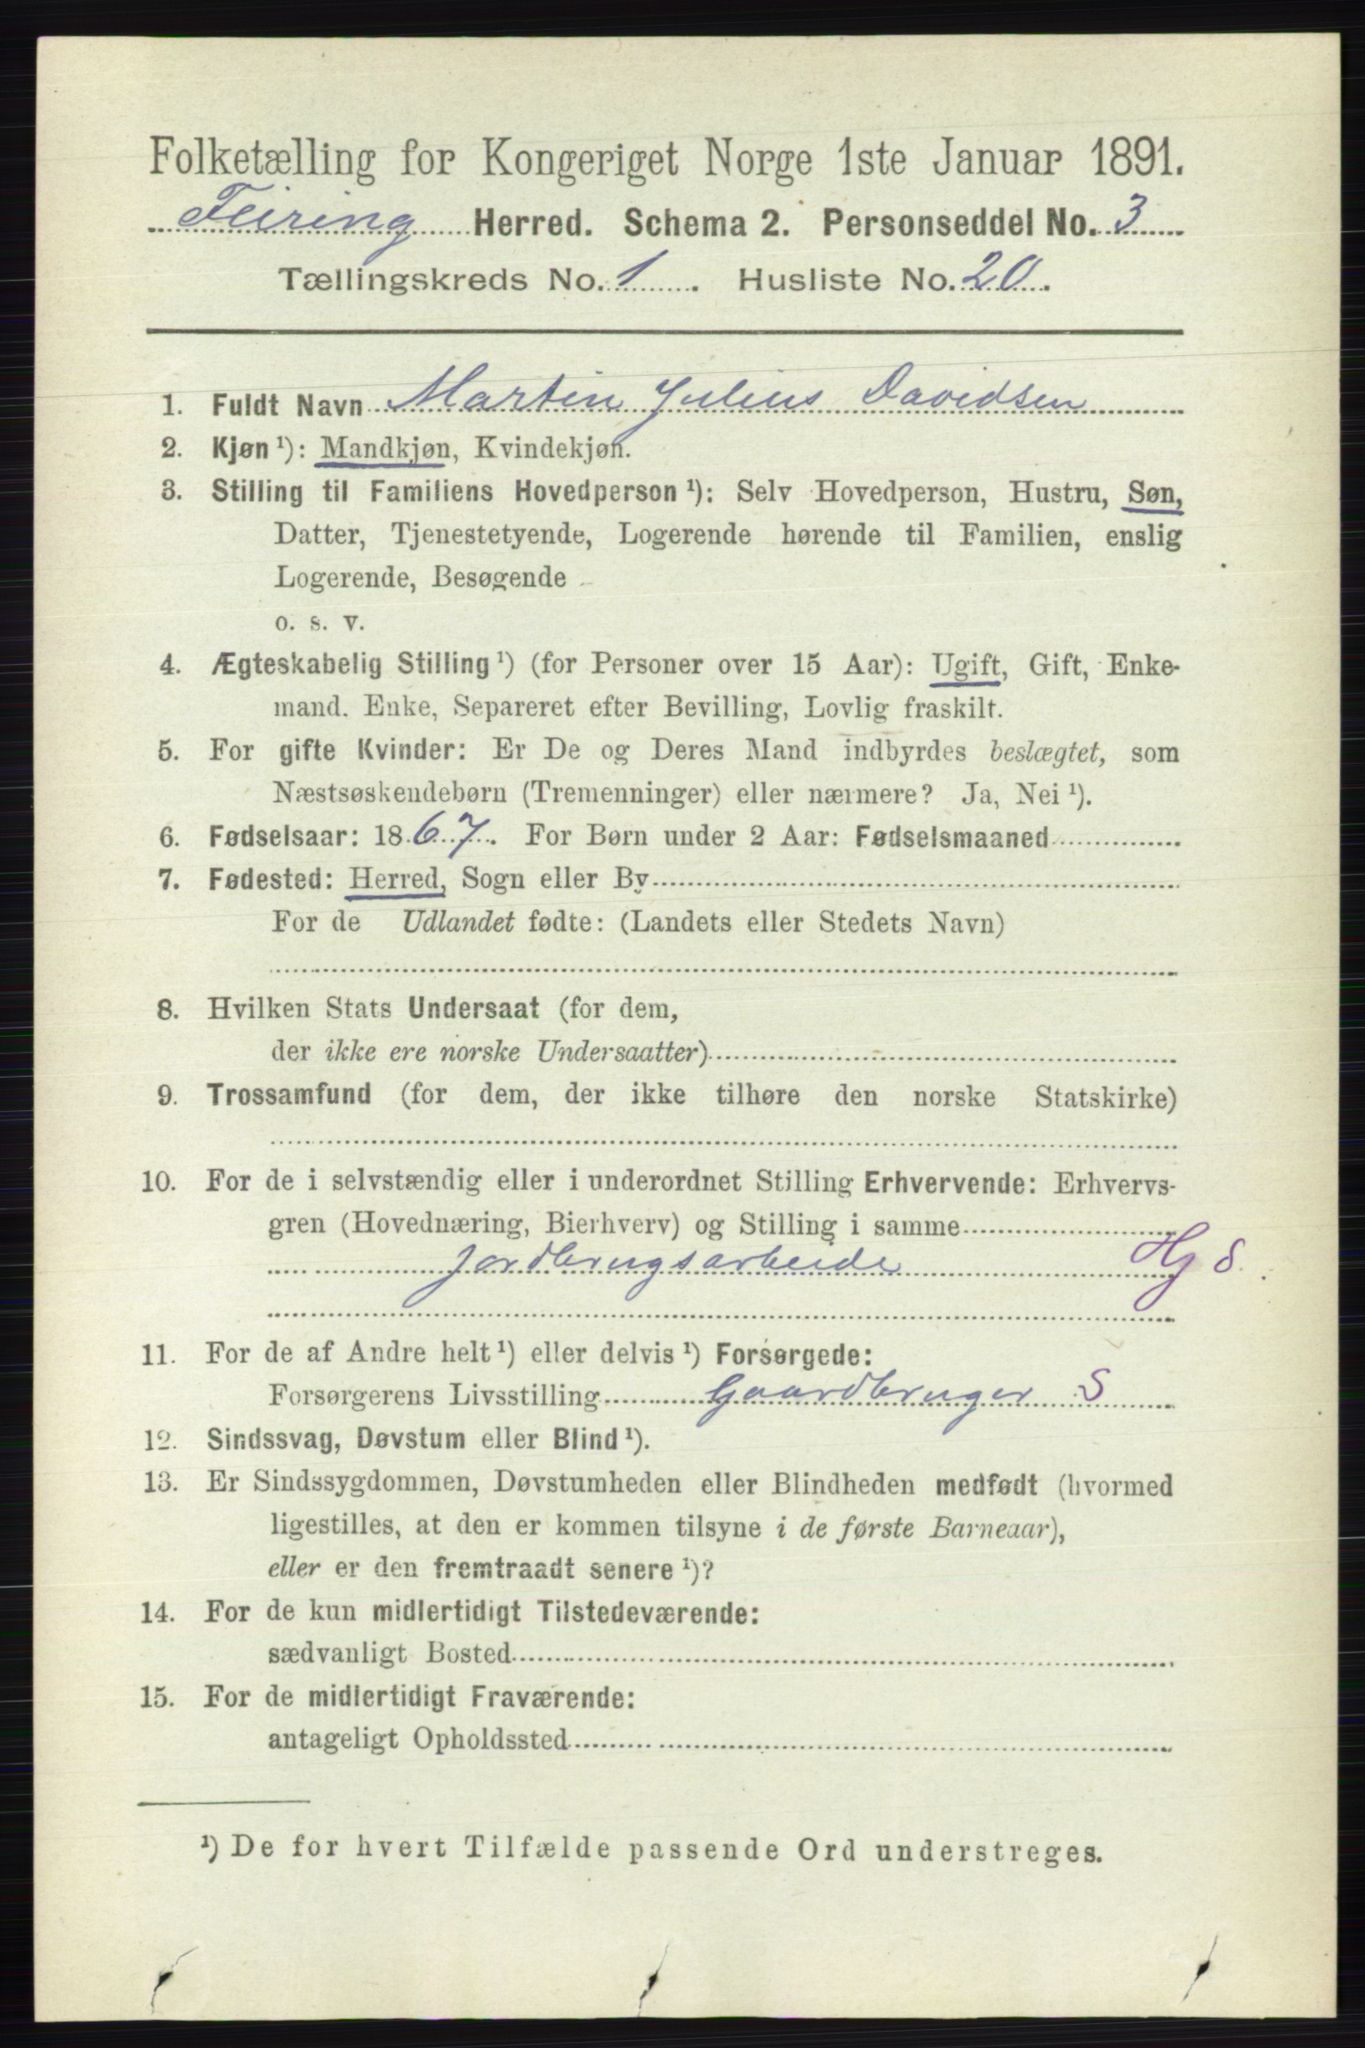 Folketælling for Kongeriget Norge 1ste Januar 1891.
Feiring Herred. Schema 2. Personseddel No. 3
Tællingskreds No. 1. Husliste No. 20.
1. Fuldt Navn Martin Julius Davidsen
2. Kjøn ¹): Mandkjøn, Kvindekjøn.
3. Stilling til Familiens Hovedperson ¹): Selv Hovedperson, Hustru, Søn,
Datter, Tjenestetyende, Logerende hørende til Familien, enslig
Logerende, Besøgende
o. s. v.
4. Ægteskabelig Stilling ¹) (for Personer over 15 Aar): Ugift, Gift, Enke-
mand. Enke, Separeret efter Bevilling, Lovlig fraskilt.
5. For gifte Kvinder: Er De og Deres Mand indbyrdes beslægtet, som
Næstsøskendebørn (Tremenninger) eller nærmere? Ja, Nei ¹).
6. Fødselsaar: 1867. For Børn under 2 Aar: Fødselsmaaned
7. Fødested: Herred, Sogn eller By
For de Udlandet fødte: (Landets eller Stedets Navn)
8. Hvilken Stats Undersaat (for dem,
der ikke ere norske Undersaatter)
9. Trossamfund (for dem, der ikke tilhøre den norske Statskirke)
10. For de i selvstændig eller i underordnet Stilling Erhvervende: Erhvervs-
gren (Hovednæring, Bierhverv) og Stilling i samme
Jordbrugsarbeide Hj S
11. For de af Andre helt ¹) eller delvis ¹) Forsørgede:
Forsørgerens Livsstilling Gaardbruger S
12. Sindssvag, Døvstum eller Blind ¹).
13. Er Sindssygdommen, Døvstumheden eller Blindheden medfødt (hvormed
ligestilles, at den er kommen tilsyne i de første Barneaar),
eller er den fremtraadt senere ¹)?
14. For de kun midlertidigt Tilstedeværende:
sædvanligt Bosted
15. For de midlertidigt Fraværende:
antageligt Opholdssted
¹) De for hvert Tilfælde passende Ord understreges.